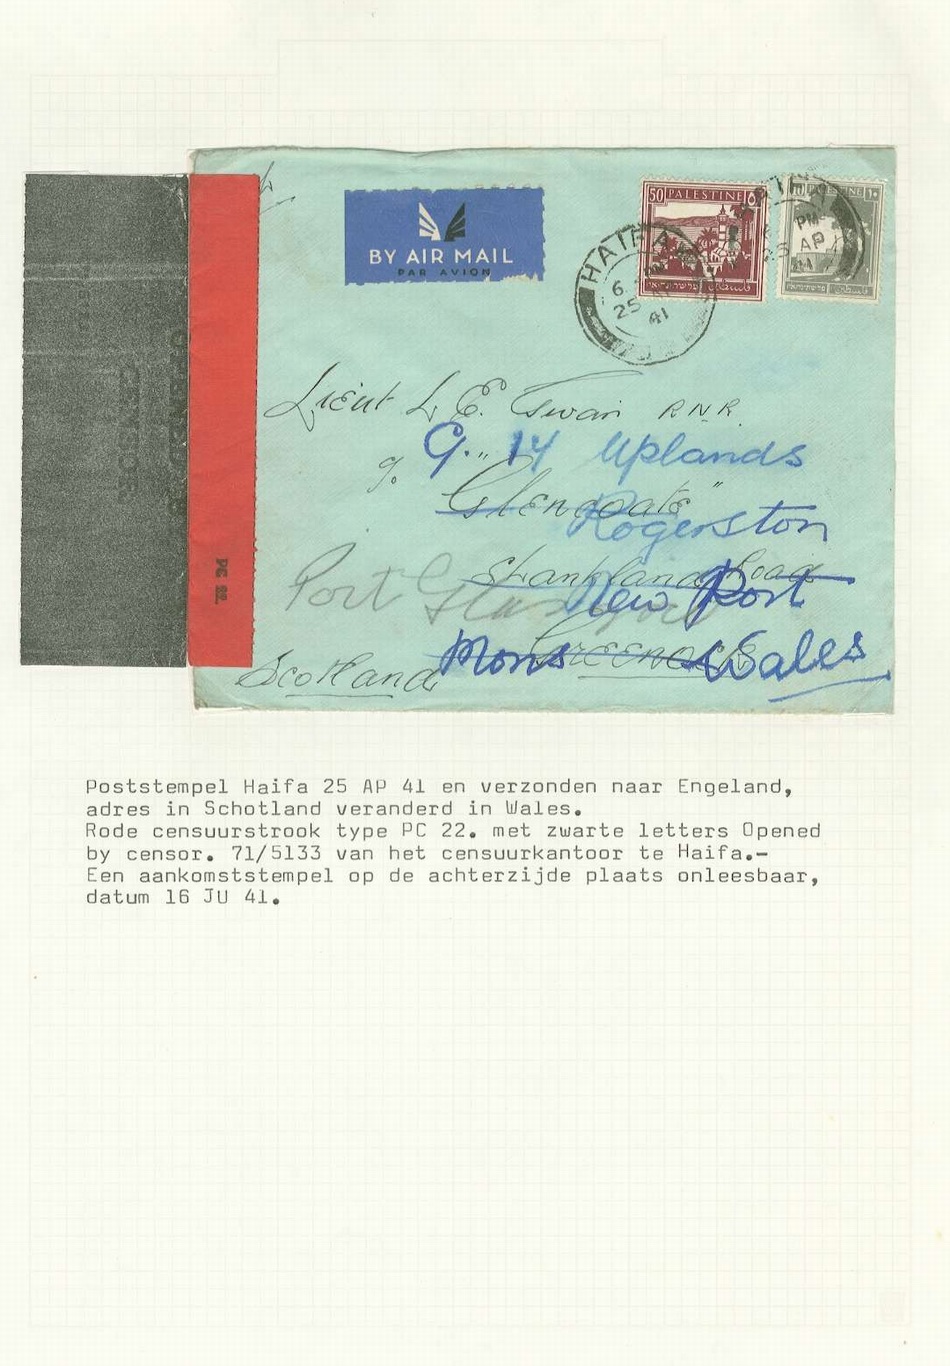 BY AIR MAIL
PAR AVION
50 PALESTINE
HAIFA
25 AP
41
PM
AP
41
PC 22.
Lieut L. E. Swan RNR
14 Uplands
c/o
Rogerston
Road
Port Glasgow
New Port
Greenock
Mons Wales
Scotland
Poststempel Haifa 25 AP 41 en verzonden naar Engeland,
adres in Schotland veranderd in Wales.
Rode censuurstrook type PC 22. met zwarte letters Opened
by censor. 71/5133 van het censuurkantoor te Haifa.-
Een aankomststempel op de achterzijde plaats onleesbaar,
datum 16 JU 41.